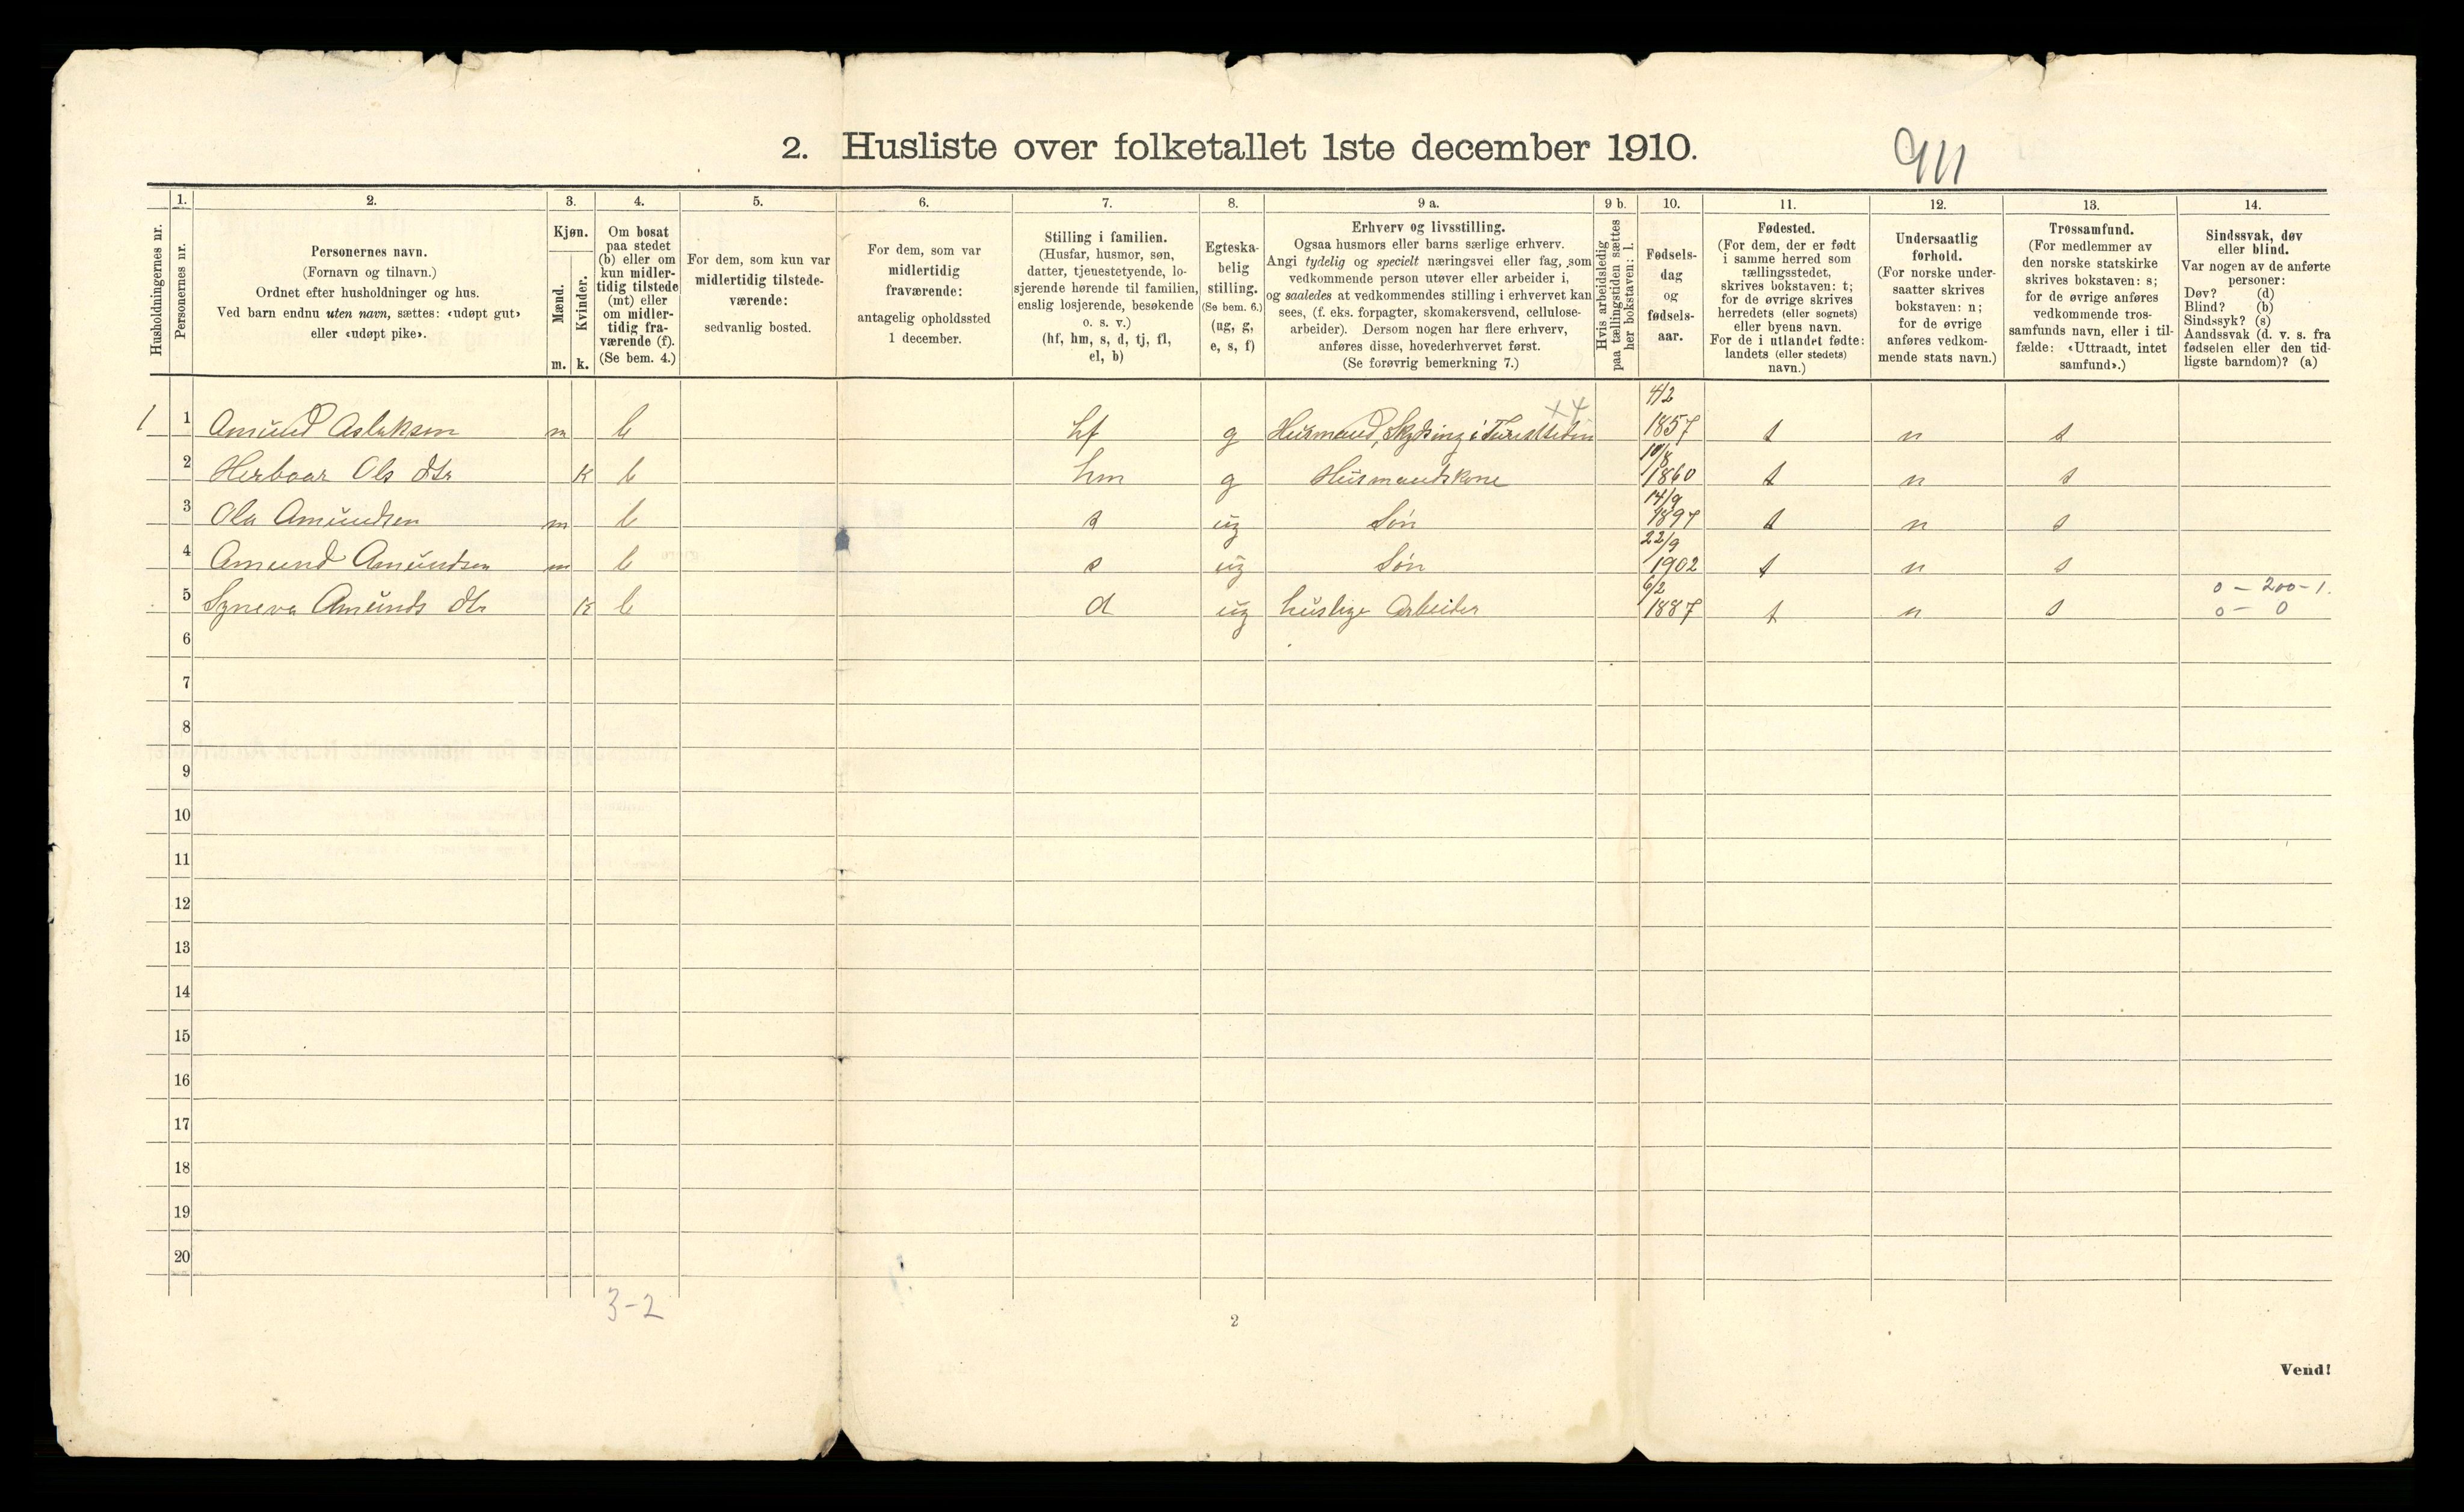 2. Husliste over folketallet 1ste december 1910.
Husholdningernes nr.
1.
Personernes nr.
2.
Personernes navn.
(Fornavn og tilnavn.)
Ordnet efter husholdninger og hus.
Ved barn endnu uten navn, sættes: «udøpt gut»
eller «udøpt pike».
3.
Kjøn.
Mænd.
Kvinder.
m. k.
4.
Om bosat
paa stedet
(b) eller om
kun midler-
tidig tilstede
(mt) eller
om midler-
tidig fra-
værende (f).
(Se bem. 4.)
5.
For dem, som kun var
midlertidig tilstede-
værende:
sedvanlig bosted.
6.
For dem, som var
midlertidig
fraværende:
antagelig opholdssted
1 december.
7.
Stilling i familien.
(Husfar, husmor, søn,
datter, tjenestetyende, lo-
sjerende hørende til familien,
enslig losjerende, besøkende
o. s. v.)
(hf, hm, s, d, tj, fl,
el, b)
8.
Egteska-
belig
stilling.
(Se bem. 6.)
(ug, g,
e, s, f)
9 a.
Erhverv og livsstilling.
Ogsaa husmors eller barns særlige erhverv.
Angi tydelig og specielt næringsvei eller fag, som
vedkommende person utøver eller arbeider i,
og saaledes at vedkommendes stilling i erhvervet kan
sees, (f. eks. forpagter, skomakersvend, cellulose-
arbeider). Dersom nogen har flere erhverv,
anføres disse, hovederhvervet først.
(Se forøvrig bemerkning 7.)
9 b.
Hvis arbeidsledig
paa tællingstiden sættes
her bokstaven: l.
10.
Fødsels-
dag
og
fødsels-
aar.
11.
Fødested.
(For dem, der er født
i samme herred som
tællingsstedet,
skrives bokstaven: t;
for de øvrige skrives
herredets (eller sognets)
eller byens navn.
For de i utlandet fødte:
landets (eller stedets)
navn.)
12.
Undersaatlig
forhold.
(For norske under-
saatter skrives
bokstaven: n;
for de øvrige
anføres vedkom-
mende stats navn.)
13.
Trossamfund.
(For medlemmer av
den norske statskirke
skrives bokstaven: s;
for de øvrige anføres
vedkommende tros-
samfunds navn, eller i til-
fælde: «Uttraadt, intet
samfund».)
14.
Sindssvak, døv
eller blind.
Var nogen av de anførte
personer:
Døv? (d)
Blind? (b)
Sindssyk? (s)
Aandssvak (d. v. s. fra
fødselen eller den tid-
ligste barndom)? (a)
1 1 Amund Aslaksen m b hf g Husmand, 4/2 1857 t n s
2 Herboar Ols dtr k b hm g Husmandskone 10/8 1860 t n s
3 Ola Amundsen m b s ug Søn 14/9 1897 t n s
4 Amund Amundsen m b s ug Søn 22/9 1902 t n s
5 Synneva Amunds dtr k b d ug huslige Arbeider 6/2 1887 t n s 0 - 200 - 1.
0 - 0
6
7
8
9
10
11
12
13
14
15
16
17
18
19
20
3-2
2
Vend!